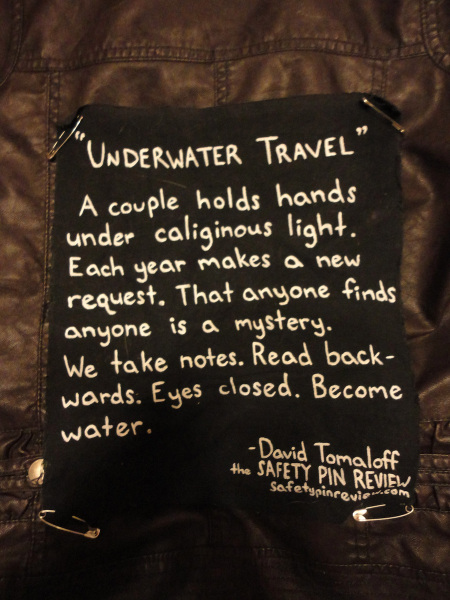 "UNDERWATER TRAVEL"
A couple holds hands
under caliginous light.
Each year makes a new
request. That anyone finds
anyone is a mystery.
We take notes. Read back-
wards. Eyes closed. Become
water.
-David Tomaloff
the SAFETY PIN REVIEW
safetypinreview.com